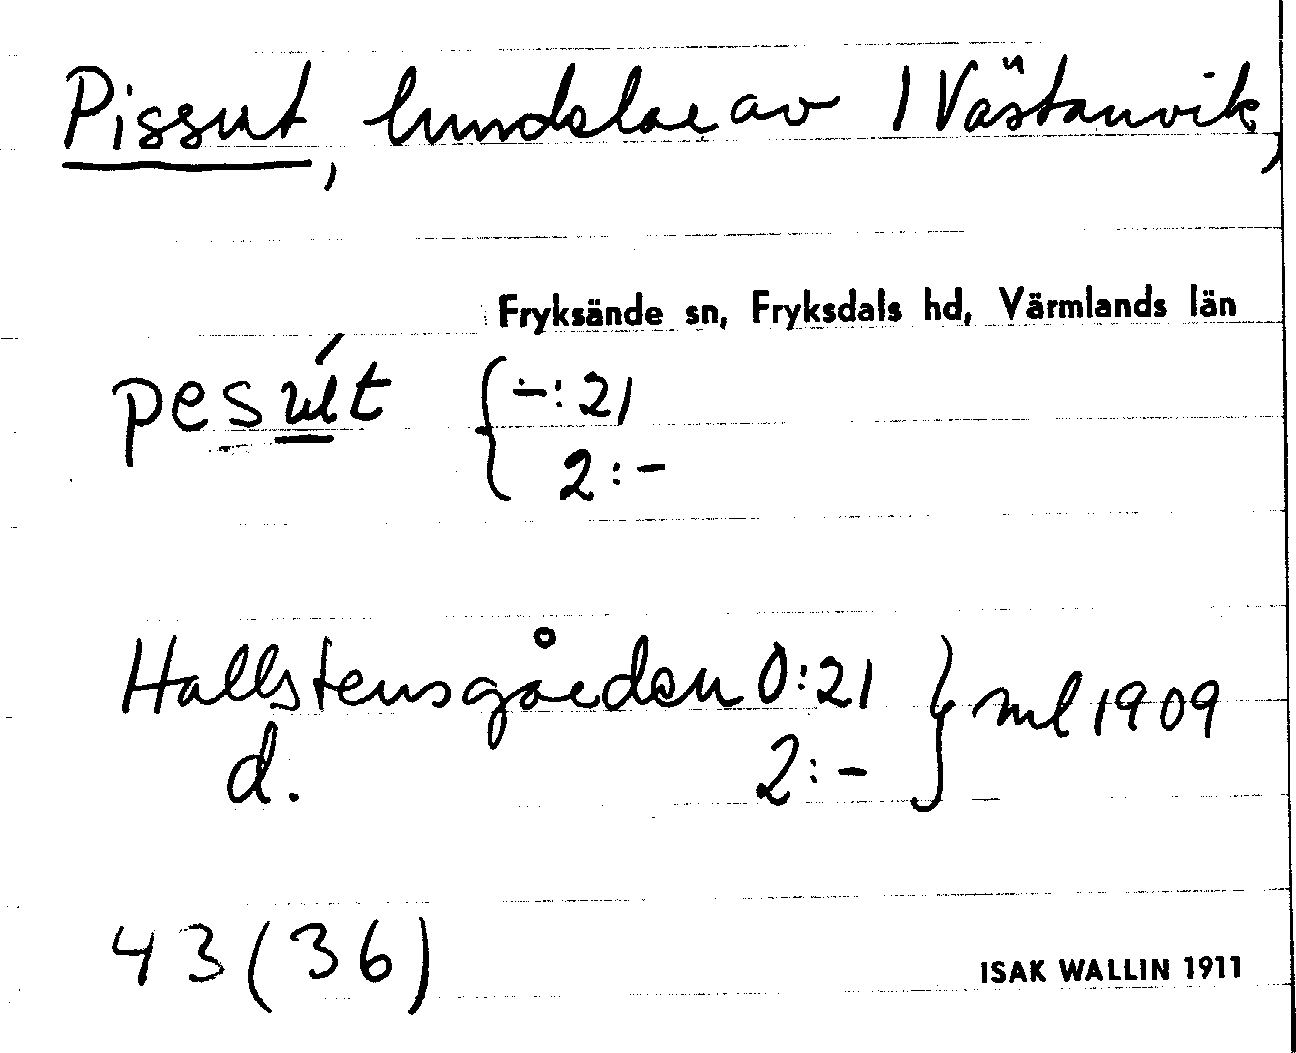 Pissut, lundelar av 1 Västanvik,
Fryksände sn, Fryksdals hd, Värmlands län
pesút { -:21
2:-
Hallstensgården 0:21 } ml 1909
d. 2:-
43 (36)
ISAK WALLIN 1911